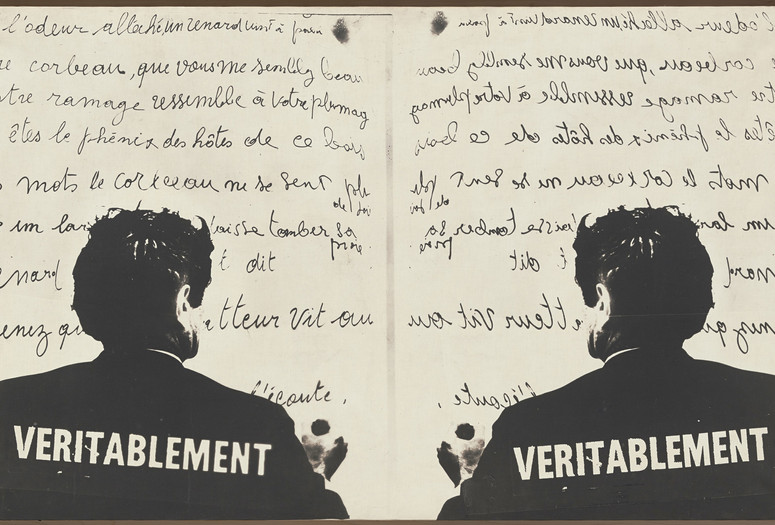 l'odeur alléché, un renard vint à
re corbeau, que vous me sembly beau
tre ramage ressemble à votre plumag
êtes le phénix des hôtes de ce bois
mots le corbeau ne se sent plu
de joi
un lar laisse tomber sa
proie
enard t dit
enez qu atteur vit au
l'écoute,
VERITABLEMENT
l'odeur alléché, un renard vint à
corbeau, que vous me sembly beau
tre ramage ressemble à votre plumag
êtes le phénix des hôtes de ce bois
mots le corbeau ne se sent plu
de joi
un lar aisse tomber sa
proie
nard t dit
nez qu atteur vit au
l'écoute,
VERITABLEMENT